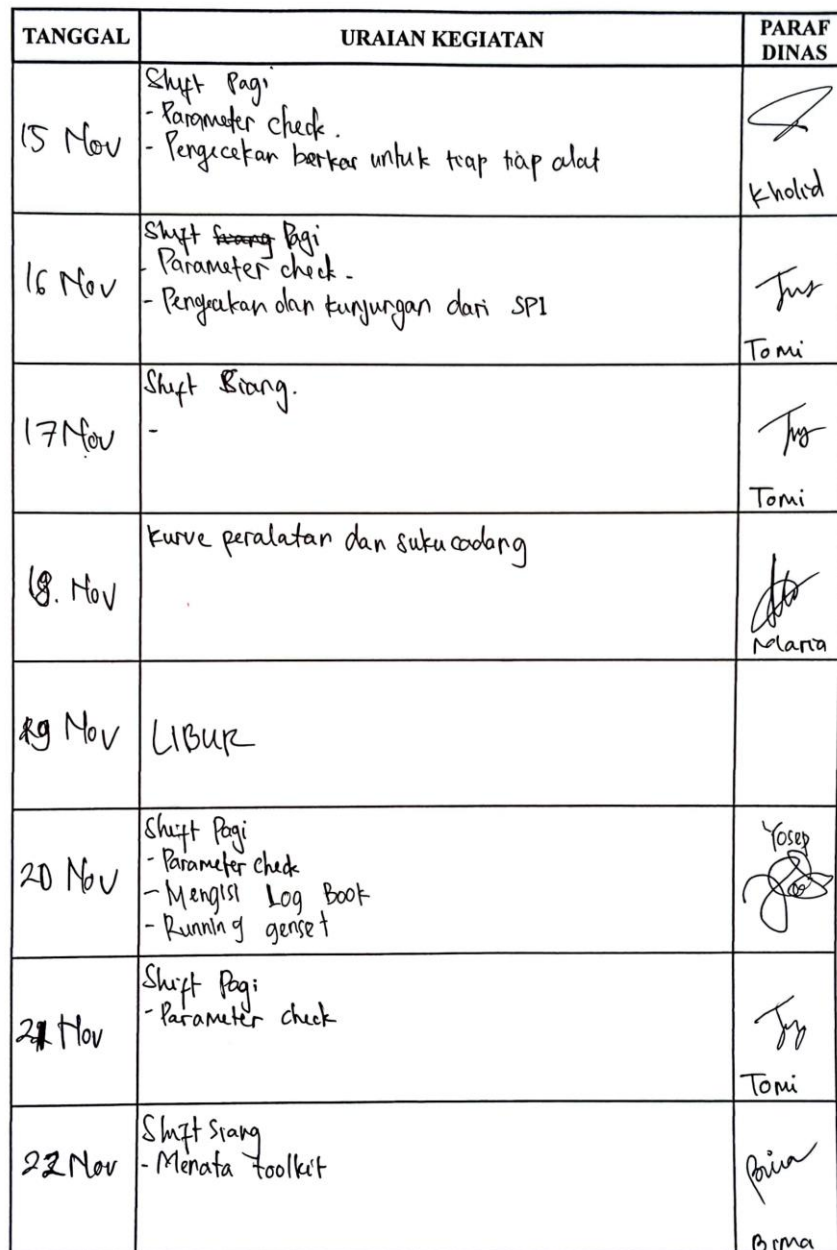 TANGGAL URAIAN KEGIATAN PARAF DINAS
15 Nov
Shift Pagi
- Parameter check.
- Pengecekan berkas untuk tiap tiap alat
Kholid
16 Nov
Shift Pagi
- Parameter check.
- Pengecekan dan kunjungan dari SPI
Tomi
17 Nov
Shift Siang.
-
Tomi
18. Nov
Kurve peralatan dan suku cadang
Maria
19 Nov
LIBUR
20 Nov
Shift Pagi
- Parameter check
- Mengisi Log Book
- Running genset
Yosep
21 Nov
Shift Pagi
- Parameter check
Tomi
22 Nov
Shift Siang
- Menata toolkit
Bima